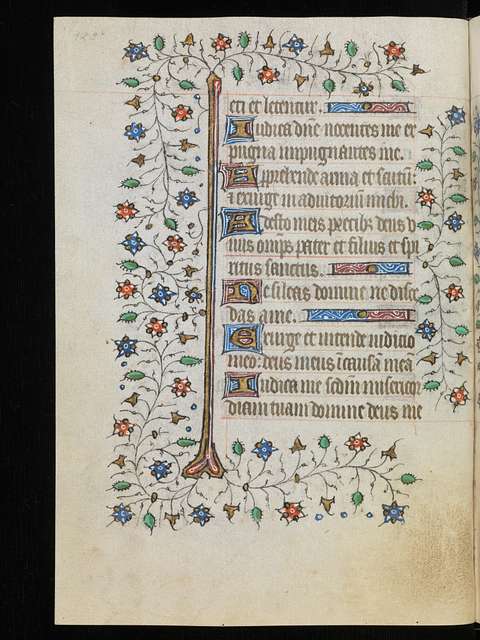 cti et letentur.
Iudica dñe nocentes me ex
pugna impugnantes me.
Apprehende arma et scutũ:
⁊ exurge in adiutoriũ michi.
Adesto meis precibꝫ deus v
nus omps pater et filius et spi
ritus sanctus.
Ne sileas domine ne disce
das a me.
Exurge et intende iudicio
meo: deus meus ĩ causã meã
Iudica me scdm misericor
diam tuam domine deus me